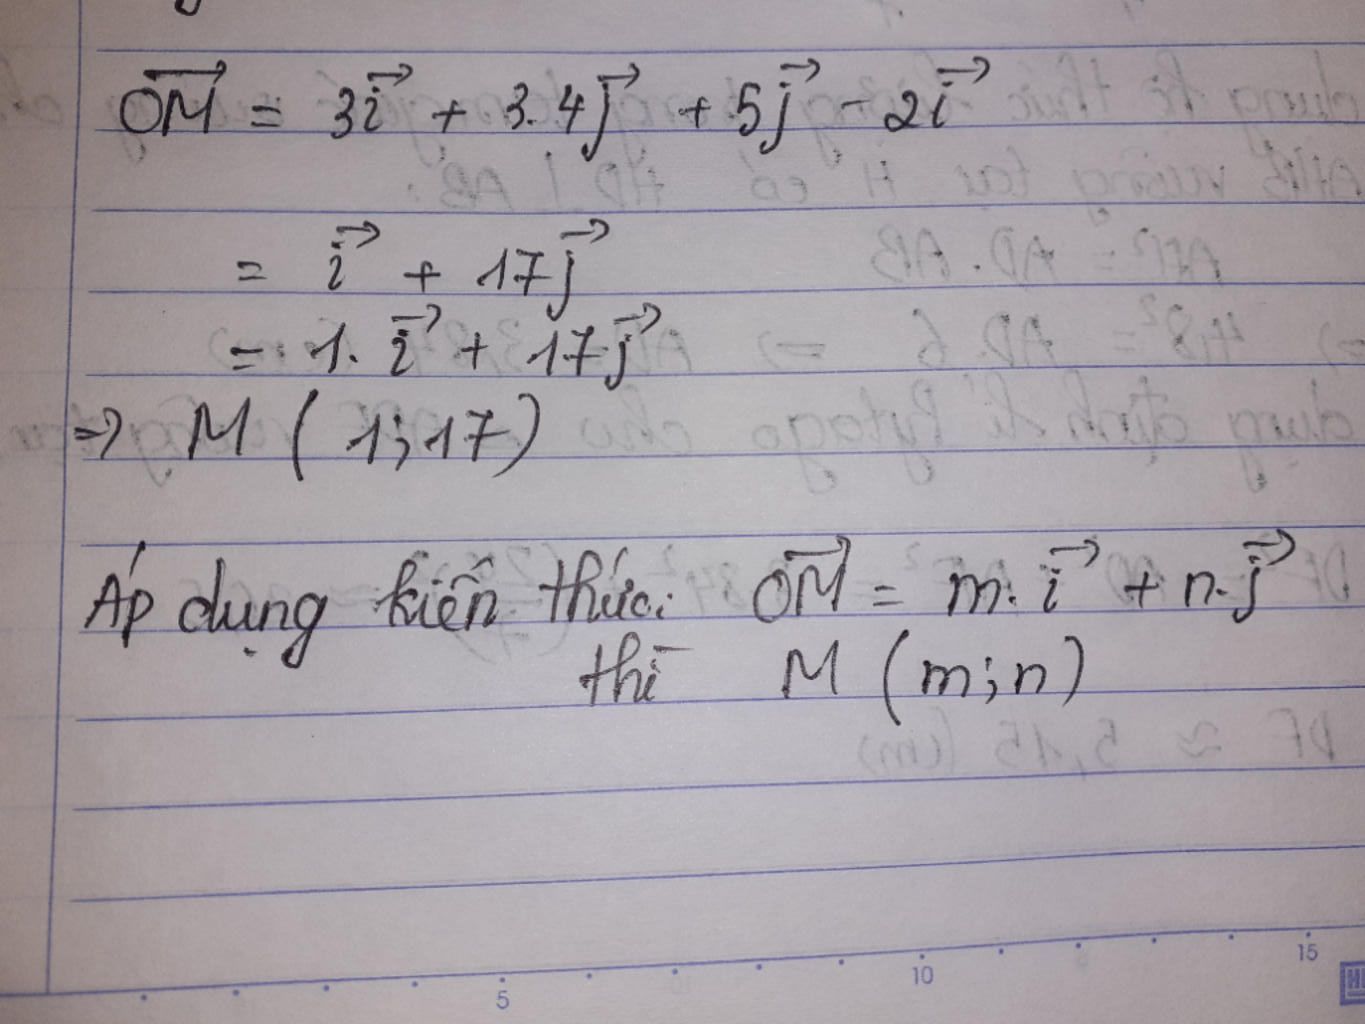 OM⃗ = 3i⃗ + 3.4j⃗ + 5j⃗ - 2i⃗
= i⃗ + 17j⃗
= 1.i⃗ + 17j⃗
=> M (1;17)
Áp dụng kiến thức: OM⃗ = m.i⃗ + n.j⃗
thì M (m;n)
5 10 15